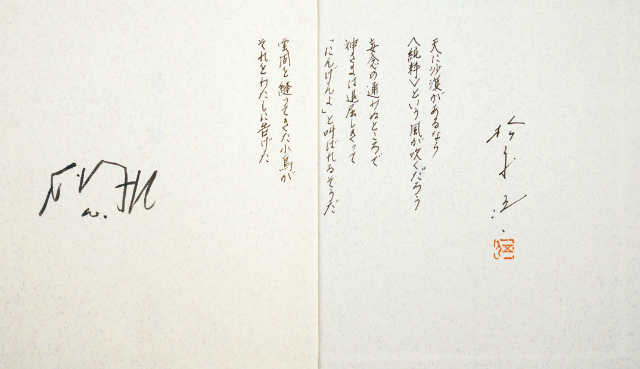 天に沙漠があるなら
〈純粋〉という風が吹くだろう
妄念の通わぬところで
神さまは退屈しきって
「にんげんよ」と呼ばれるそうだ
雲間を縫ってきた小鳥が
それとわたしに告げた